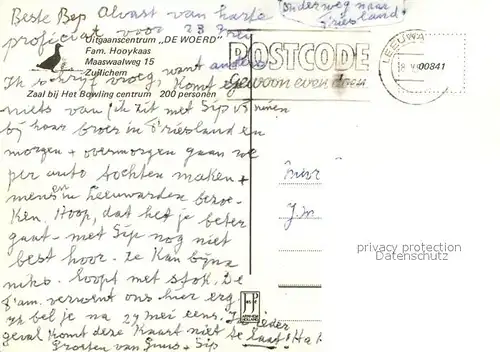 Beste Bep Alvast van harte
(onderweg naar Friesland)
proficiat voor 23 Mei
Uitgaanscentrum „DE WOERD"
Fam. Hooykaas
Maaswaalweg 15
Zuilichem
Zaal bij Het Bowling centrum 200 personen
POSTCODE
Gewoon even doen
LEEUWA
00841
Ik schrijf vroeg want anders
Komt er
niets van (ik zit met Sip
bij haar broer in Friesland en
morgen + overmorgen gaan we
per auto tochten maken +
mensen in Leeuwarden bezoe-
ken. Hoop, dat het je beter
gaat - met Sip nog niet
best hoor. Ze kan bijna
niks. Loopt met stok. De
Fam. verwent ons hier erg.
Ik bel je na 27 mei eens. In ieder
geval komt deze kaart niet te laat! Ha
Groeten van Guus + Sip
J.M
JP
ARNHEM
HOLLAND
privacy protection
Datenschutz